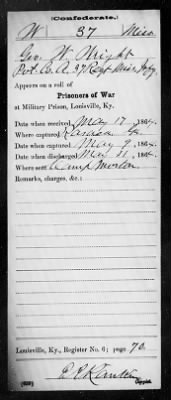 (Confederate.)
W 37 Miss
Geo. W. Wright
Pvt. Co. A. 37 Regt Miss Infy.
Appears on a roll of
Prisoners of War
at Military Prison, Louisville, Ky.
Date when received May 17, 1864
Where captured
Date when captured May 9, 1864
Date when discharged May 21, 1864
Where sent Camp Morton
Remarks, charges, &c.:
Louisville, Ky., Register No. 6; page 70.
Copyist.